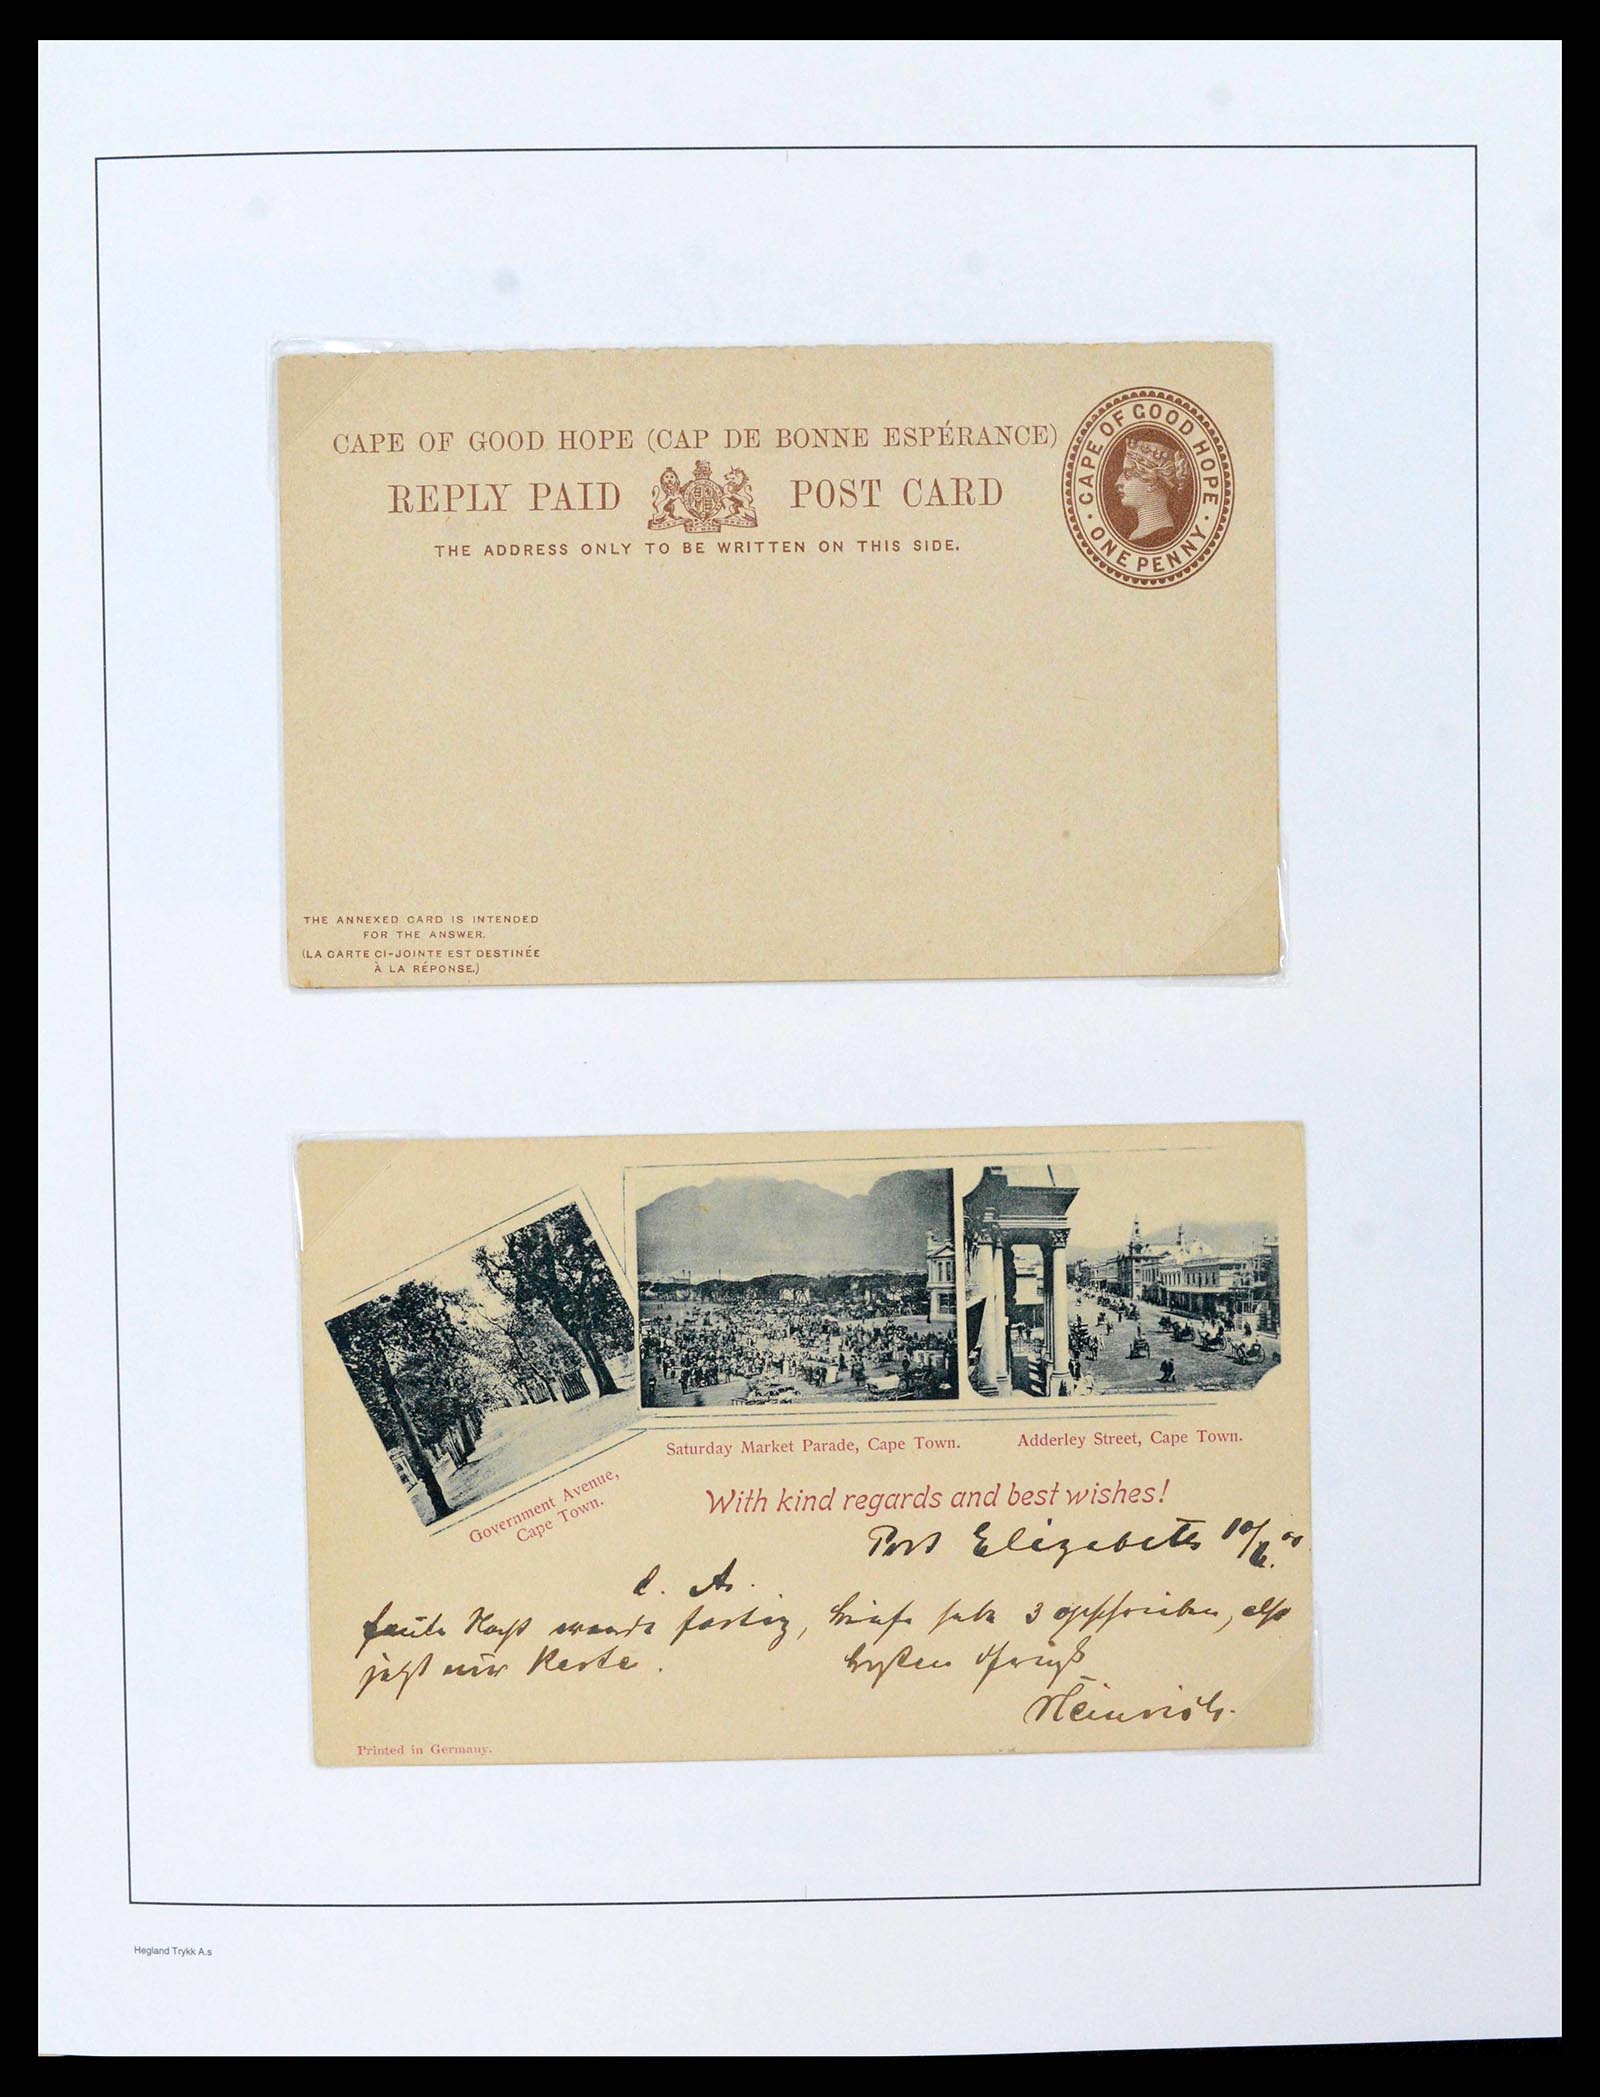 CAPE OF GOOD HOPE (CAP DE BONNE ESPÉRANCE)
REPLY PAID POST CARD
THE ADDRESS ONLY TO BE WRITTEN ON THIS SIDE.
CAPE OF GOOD HOPE
ONE PENNY
THE ANNEXED CARD IS INTENDED
FOR THE ANSWER.
(LA CARTE CI-JOINTE EST DESTINÉE
À LA RÉPONSE.)
Saturday Market Parade, Cape Town.
Adderley Street, Cape Town.
Government Avenue,
Cape Town.
With kind regards and best wishes!
Port Elizabeth
L. A.
heute Nacht wurde fertig, Briefe habe 3 geschrieben, also
jetzt nur Karte.
besten Gruß
Heinrich.
Printed in Germany.
Hegland Trykk A.s